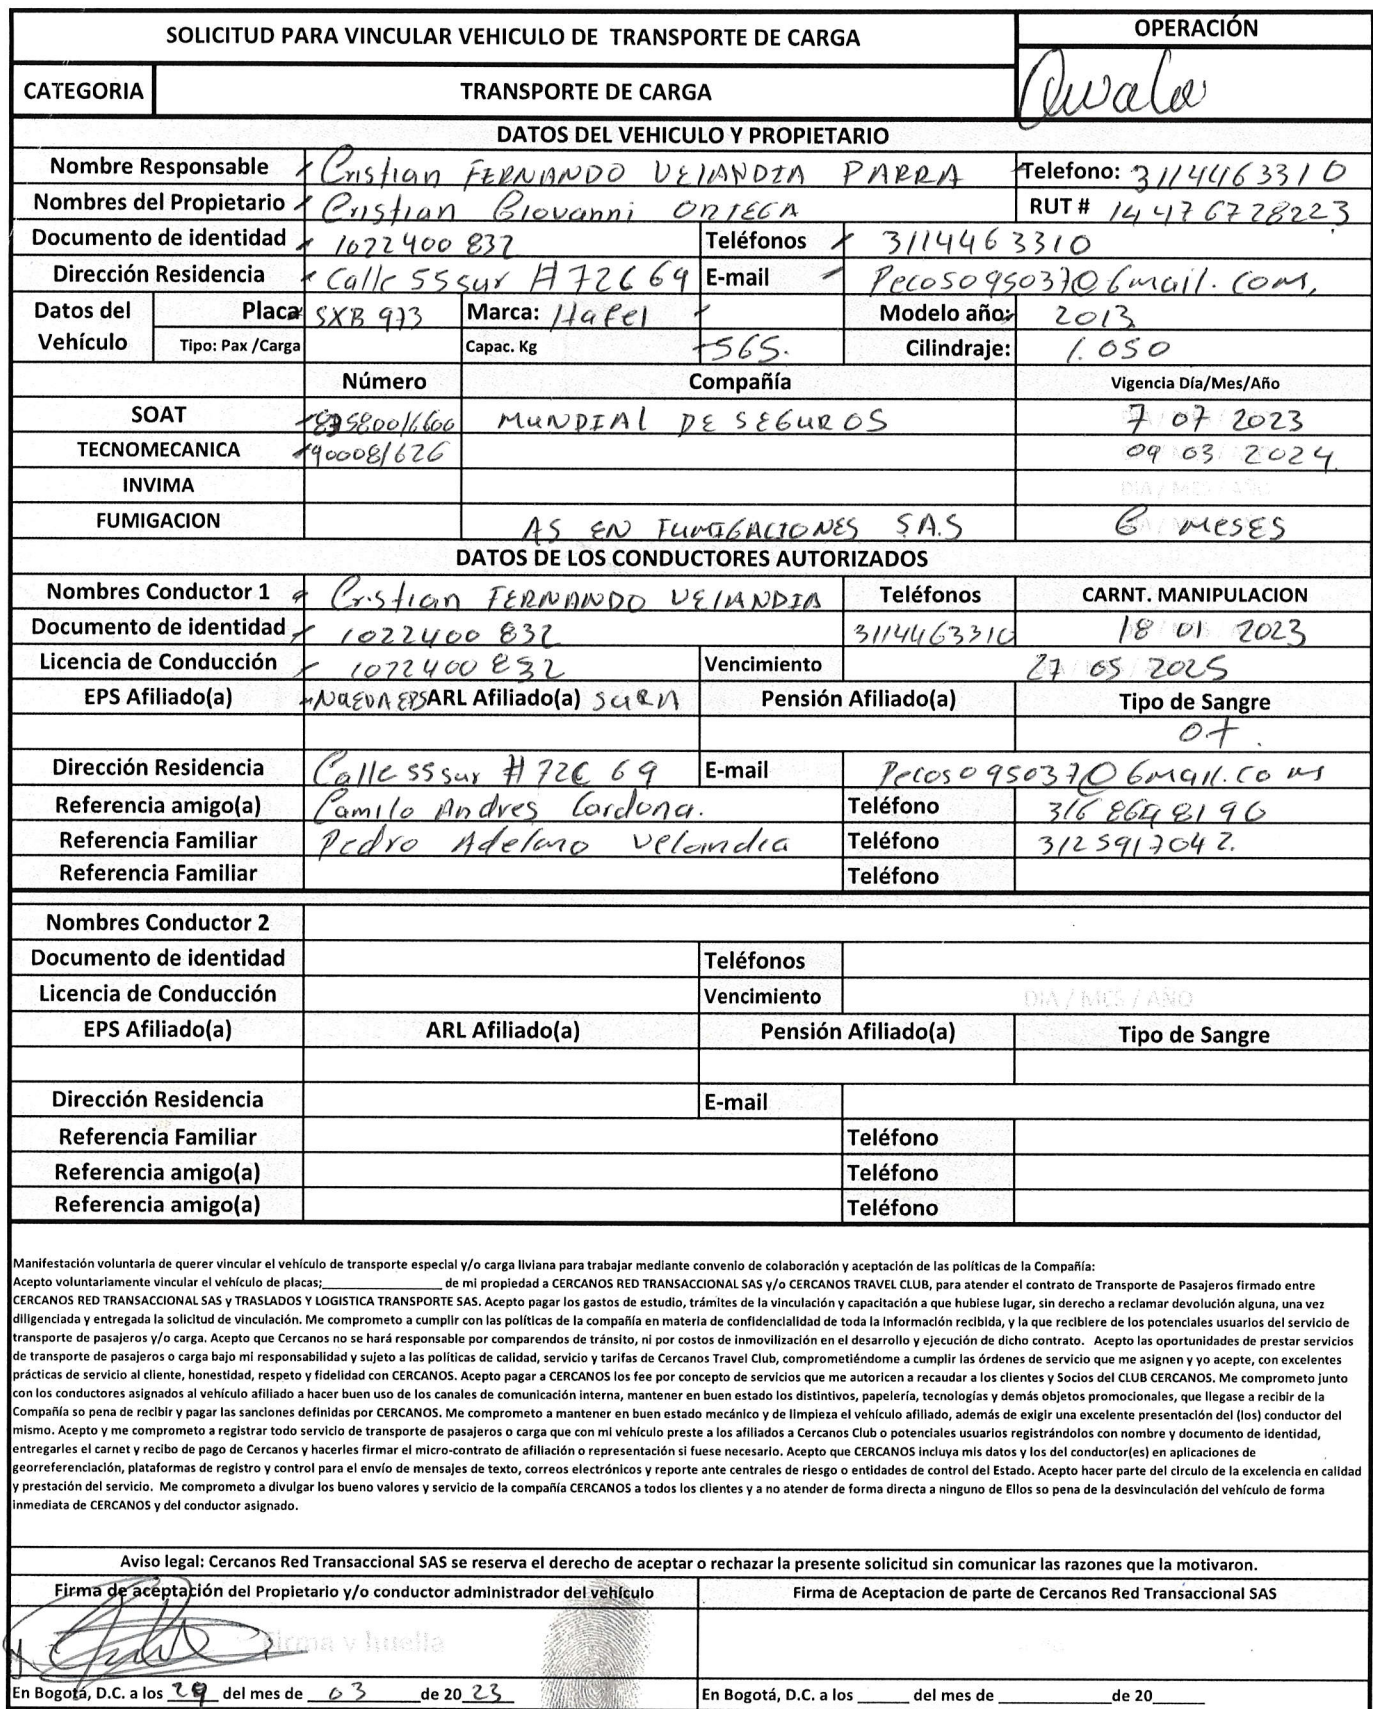 SOLICITUD PARA VINCULAR VEHICULO DE TRANSPORTE DE CARGA
OPERACIÓN
CATEGORIA TRANSPORTE DE CARGA
DATOS DEL VEHICULO Y PROPIETARIO
Nombre Responsable Cristian FERNANDO VELANDIA PARRA Telefono: 3114463310
Nombres del Propietario Cristian Giovanni ORTEGA RUT # 14476728223
Documento de identidad 1022400832 Teléfonos 3114463310
Dirección Residencia Calle 55 sur # 72C 69 E-mail Pecoso95037@Gmail.com,
Datos del Vehículo Placa SXB 973 Marca: Hafei Modelo año: 2013
Tipo: Pax /Carga Capac. Kg 565. Cilindraje: 1.050
Número Compañía Vigencia Día/Mes/Año
SOAT MUNDIAL DE SEGUROS 7 07 2023
TECNOMECANICA 09 03 2024
INVIMA DIA / MES / AÑO
FUMIGACION AS EN FUMIGACIONES S.A.S 6 MESES
DATOS DE LOS CONDUCTORES AUTORIZADOS
Nombres Conductor 1 Cristian FERNANDO VELANDIA Teléfonos CARNT. MANIPULACION
Documento de identidad 1022400 832 3114463310 18 01 2023
Licencia de Conducción 1022400832 Vencimiento 27 05 2025
EPS Afiliado(a) NUEVA EPS ARL Afiliado(a) SURA Pensión Afiliado(a) Tipo de Sangre
O+.
Dirección Residencia Calle 55 sur # 72C 69 E-mail Pecoso95037@Gmail.com
Referencia amigo(a) Camilo Andres Cardona. Teléfono 3168648190
Referencia Familiar Pedro Velandia Teléfono 3125917042.
Referencia Familiar Teléfono
Nombres Conductor 2
Documento de identidad Teléfonos
Licencia de Conducción Vencimiento DIA / MES / AÑO
EPS Afiliado(a) ARL Afiliado(a) Pensión Afiliado(a) Tipo de Sangre
Dirección Residencia E-mail
Referencia Familiar Teléfono
Referencia amigo(a) Teléfono
Referencia amigo(a) Teléfono
Manifestación voluntaria de querer vincular el vehículo de transporte especial y/o carga liviana para trabajar mediante convenio de colaboración y aceptación de las políticas de la Compañía:
Acepto voluntariamente vincular el vehículo de placas;____________________ de mi propiedad a CERCANOS RED TRANSACCIONAL SAS y/o CERCANOS TRAVEL CLUB, para atender el contrato de Transporte de Pasajeros firmado entre
CERCANOS RED TRANSACCIONAL SAS y TRASLADOS Y LOGISTICA TRANSPORTE SAS. Acepto pagar los gastos de estudio, trámites de la vinculación y capacitación a que hubiese lugar, sin derecho a reclamar devolución alguna, una vez
diligenciada y entregada la solicitud de vinculación. Me comprometo a cumplir con las políticas de la compañía en materia de confidencialidad de toda la Información recibida, y la que recibiere de los potenciales usuarios del servicio de
transporte de pasajeros y/o carga. Acepto que Cercanos no se hará responsable por comparendos de tránsito, ni por costos de inmovilización en el desarrollo y ejecución de dicho contrato. Acepto las oportunidades de prestar servicios
de transporte de pasajeros o carga bajo mi responsabilidad y sujeto a las políticas de calidad, servicio y tarifas de Cercanos Travel Club, comprometiéndome a cumplir las órdenes de servicio que me asignen y yo acepte, con excelentes
prácticas de servicio al cliente, honestidad, respeto y fidelidad con CERCANOS. Acepto pagar a CERCANOS los fee por concepto de servicios que me autoricen a recaudar a los clientes y Socios del CLUB CERCANOS. Me comprometo junto
con los conductores asignados al vehículo afiliado a hacer buen uso de los canales de comunicación interna, mantener en buen estado los distintivos, papelería, tecnologías y demás objetos promocionales, que llegase a recibir de la
Compañía so pena de recibir y pagar las sanciones definidas por CERCANOS. Me comprometo a mantener en buen estado mecánico y de limpieza el vehículo afiliado, además de exigir una excelente presentación del (los) conductor del
mismo. Acepto y me comprometo a registrar todo servicio de transporte de pasajeros o carga que con mi vehículo preste a los afiliados a Cercanos Club o potenciales usuarios registrándolos con nombre y documento de identidad,
entregarles el carnet y recibo de pago de Cercanos y hacerles firmar el micro-contrato de afiliación o representación si fuese necesario. Acepto que CERCANOS incluya mis datos y los del conductor(es) en aplicaciones de
georreferenciación, plataformas de registro y control para el envío de mensajes de texto, correos electrónicos y reporte ante centrales de riesgo o entidades de control del Estado. Acepto hacer parte del circulo de la excelencia en calidad
y prestación del servicio. Me comprometo a divulgar los bueno valores y servicio de la compañía CERCANOS a todos los clientes y a no atender de forma directa a ninguno de Ellos so pena de la desvinculación del vehículo de forma
inmediata de CERCANOS y del conductor asignado.
Aviso legal: Cercanos Red Transaccional SAS se reserva el derecho de aceptar o rechazar la presente solicitud sin comunicar las razones que la motivaron.
Firma de aceptación del Propietario y/o conductor administrador del vehículo Firma de Aceptacion de parte de Cercanos Red Transaccional SAS
Firma y huella
En Bogotá, D.C. a los 29 del mes de 03 de 20 23 En Bogotá, D.C. a los ______ del mes de ____________ de 20______